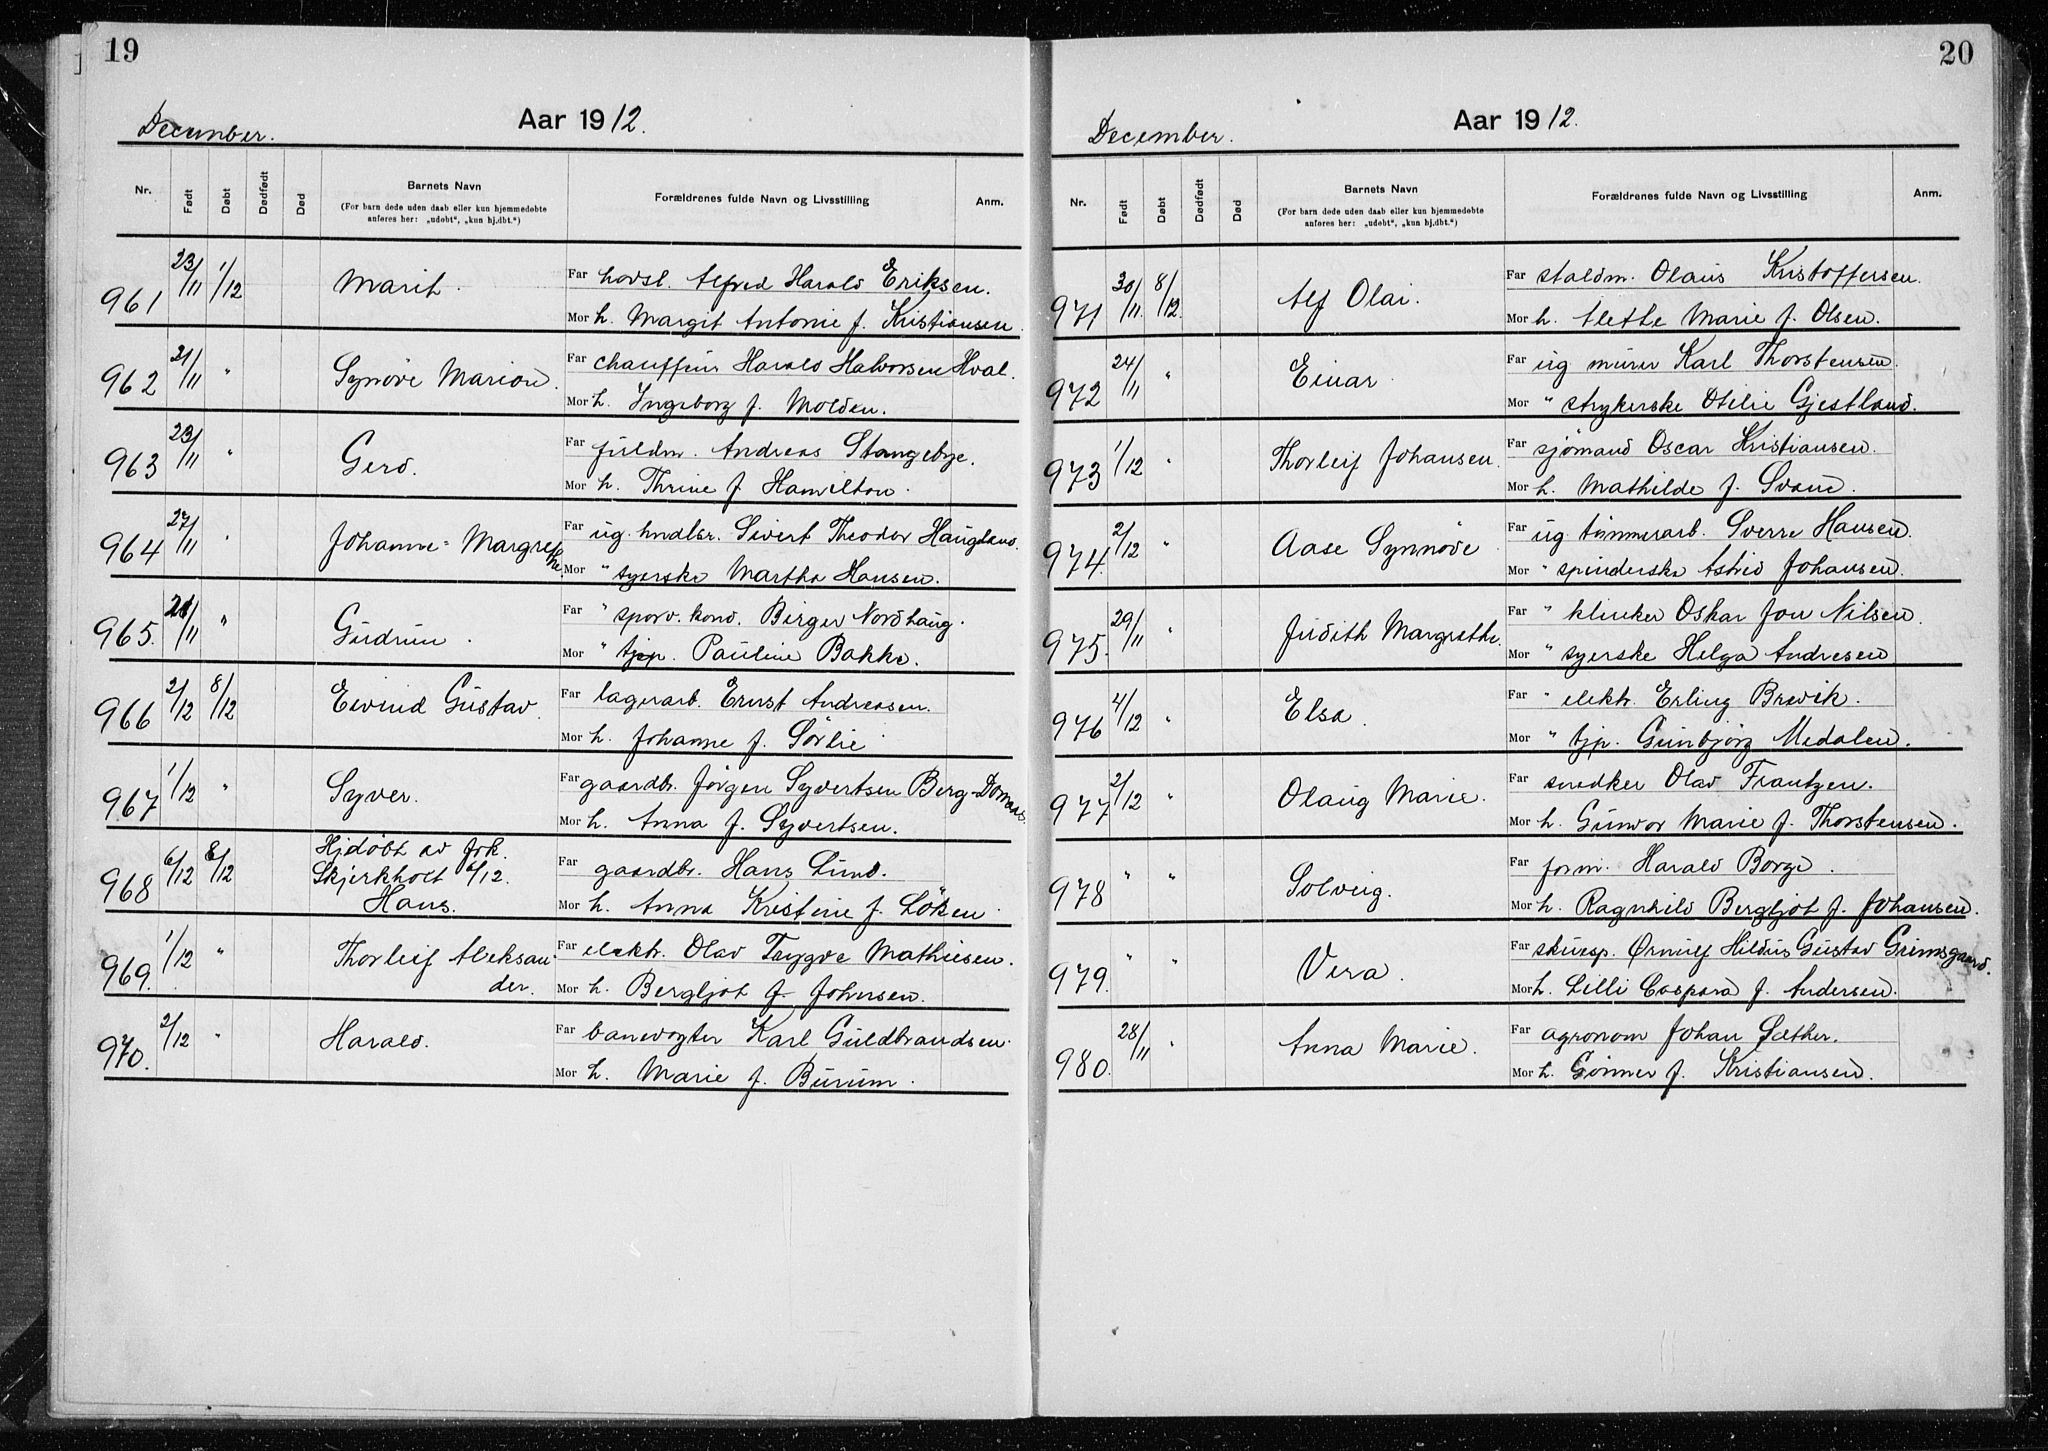 19
December.
Aar 1912.
Nr.
Født
Døbt
Dødfødt
Død
Barnets Navn
(For barn døde uden daab eller kun hjemmedøbte
anføres her: „udøbt“, „kun hj.dbt.“)
Forældrenes fulde Navn og Livsstilling
Anm.
961 23/11 1/12 Marit. Far hovsl. Alfred Harald Eriksen.
Mor h. Margit Antonie f. Kristiansen.
962 21/11 " Synöve Marion. Far chauffeur Harald Halvorsen Hval.
Mor h. Ingeborg f. Molden.
963 23/11 " Gerd. Far fuldm. Andreas Stangebye.
Mor h. Thrine f. Hamilton.
964 27/11 " Johanne-Margrethe. Far ug. hndlbr. Sivert Theodor Haugland.
Mor " syerske Martha Hansen.
965. 21/11 " Gudrun. Far " sporv. kond. Birger Nordhaug.
Mor " tjp. Pauline Bakke.
966 2/12 8/12 Eivind Gustav. Far lagerarb. Ernst Andreasen.
Mor h. Johanne f. Sörlie
967 1/12 " Syver. Far gaardbr. Jörgen Syvertsen Berg-Domaas.
Mor h. Anna f. Syvertsen.
968 6/12 8/12 Hjdöbt av frk.
Skjerkholt 6/12.
Hans. Far gaardbr. Hans Lund.
Mor h. Anna Kristine f. Löken.
969. 1/12 " Thorleif Aleksan-
der. Far elektr. Olav Trygve Mathiesen.
Mor h. Bergljot f. Johnsen.
970. 2/12 " Harald. Far banevogter Karl Guldbrandsen.
Mor h. Marie f. Burum.
20
December.
Aar 1912.
Nr.
Født
Døbt
Dødfødt
Død
Barnets Navn
(For barn døde uden daab eller kun hjemmedøbte
anføres her: „udøbt“, „kun hj.dbt.“)
Forældrenes fulde Navn og Livsstilling
Anm.
971 30/11. 8/12. Alf Olai. Far staldm. Olaus Kristoffersen.
Mor h. Alette Marie f. Olsen.
972 24/11 " Einar. Far ug murer Karl Thorstensen.
Mor " strykerske Otilie Gjestland.
973 1/12 " Thorleif Johansen. Far sjömand Oscar Kristiansen.
Mor h. Mathilde f. Svane.
974. 2/12 " Aase Synnöve Far ug. tömmerarb. Sverre Hansen.
Mor " spinderske Astrid Johansen.
975. 29/11 " Judith Margrethe. Far " klinker Oskar Jon Nilsen.
Mor " syerske Helga Andresen
976 4/12 " Elsa. Far " elektr. Erling Brevik.
Mor " tjp. Gunbjörg Medalen.
977 2/12 " Olaug Marie. Far snedker Olav Frantzen.
Mor h. Gunvor Marie f. Thorstensen.
978 " " Solveig. Far form. Harald Borge.
Mor h. Ragnhild Bergljot f. Johansen.
979. " " Vera. Far skuesp. Ørnulf Hildus Gustav Grimsgaard.
Mor h. Lilli Caspara f. Andersen.
980. 28/11 " Anna Marie. Far agronom Johan Sæther.
Mor h. Gunner f. Kristiansen.